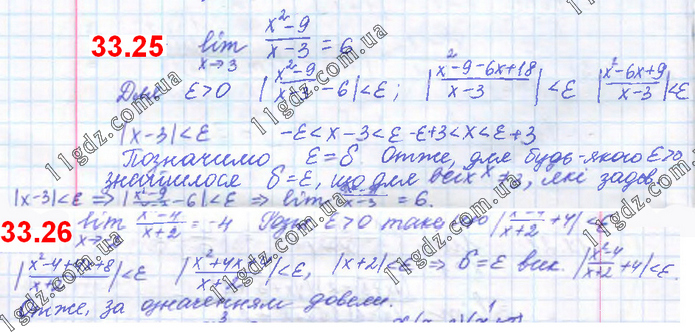 33.25 lim x→3 x²-9 / x-3 = 6
Для ε>0 |x²-9 / x-3 - 6|<ε; |x²-9-6x+18 / x-3|<ε |x²-6x+9 / x-3|<ε
|x-3|<ε -ε<x-3<ε -ε+3<x<ε+3
Позначимо ε=δ. Отже, для будь-якого ε>0
знайшлося δ=ε, що для всіх x≠3, які
|x-3|<ε ⇒ |x²-9 / x-3 - 6|<ε ⇒ lim x²-9 / x-3 = 6.
33.26 lim x²-4 / x+2 = -4 ε>0 таке що |x²-4 / x+2 + 4|<ε
|x²-4+4x+8 / x+2|<ε |x²+4x+4 / x+2|<ε, |x+2|<ε ⇒ δ=ε вик. |x²-4 / x+2 + 4|<ε.
Отже, за означенням довели.
11gdz.com.ua